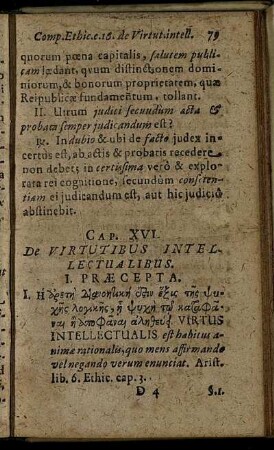 Comp.Ethic.c.16. de Virtut.intell. 79
quorum pœna capitalis, salutem publi-
cam lædant, qvum distinctionem domi-
niorum, & bonorum proprietatem, quæ
Reipublicæ fundamentum, tollant.
II. Utrum judici secundùm acta &
probata semper judicandum est?
℞. In dubio & ubi de facto judex in-
certus est, ab actis & probatis recedere
non debet; in certissima verò & explo-
rata rei cognitione, secundùm conscien-
tiam ei judicandum est, aut hic judicio
abstinebit.
CAP. XVI.
De VIRTUTIBUS INTEL-
LECTUALIBUS.
I. PRÆCEPTA.
I. Ἡ ἀρετὴ διανοητικὴ ἐστιν ἕξις τῆς ψυ-
χῆς λογικῆς, ᾗ ψυχὴ τῷ καταφά-
ναι ἢ ἀποφάναι ἀληθεύει VIRTUS
INTELLECTUALIS est habitus a-
nimæ rationalis, quo mens affirmando
vel negando verum enunciat. Arist.
lib. 6. Ethic. cap. 3.
D 4 §.1.